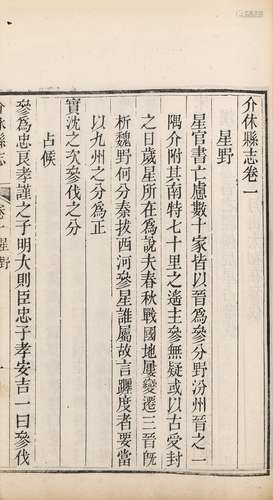 介休縣志卷一
星野
星官書亡慮數十家皆以晉為參分野汾州晉之一
隅介附其南特七十里之遙主參無疑或以古受封
之日歲星所在為說夫春秋戰國地屢變遷三晉旣
析魏野何分秦拔西河參星誰屬故言躔度者要當
以九州之分為正
實沈之次參伐之分
占候
參為忠良孝謹之子明大則臣忠子孝安吉一曰參伐
介休縣志
卷一 星野
一